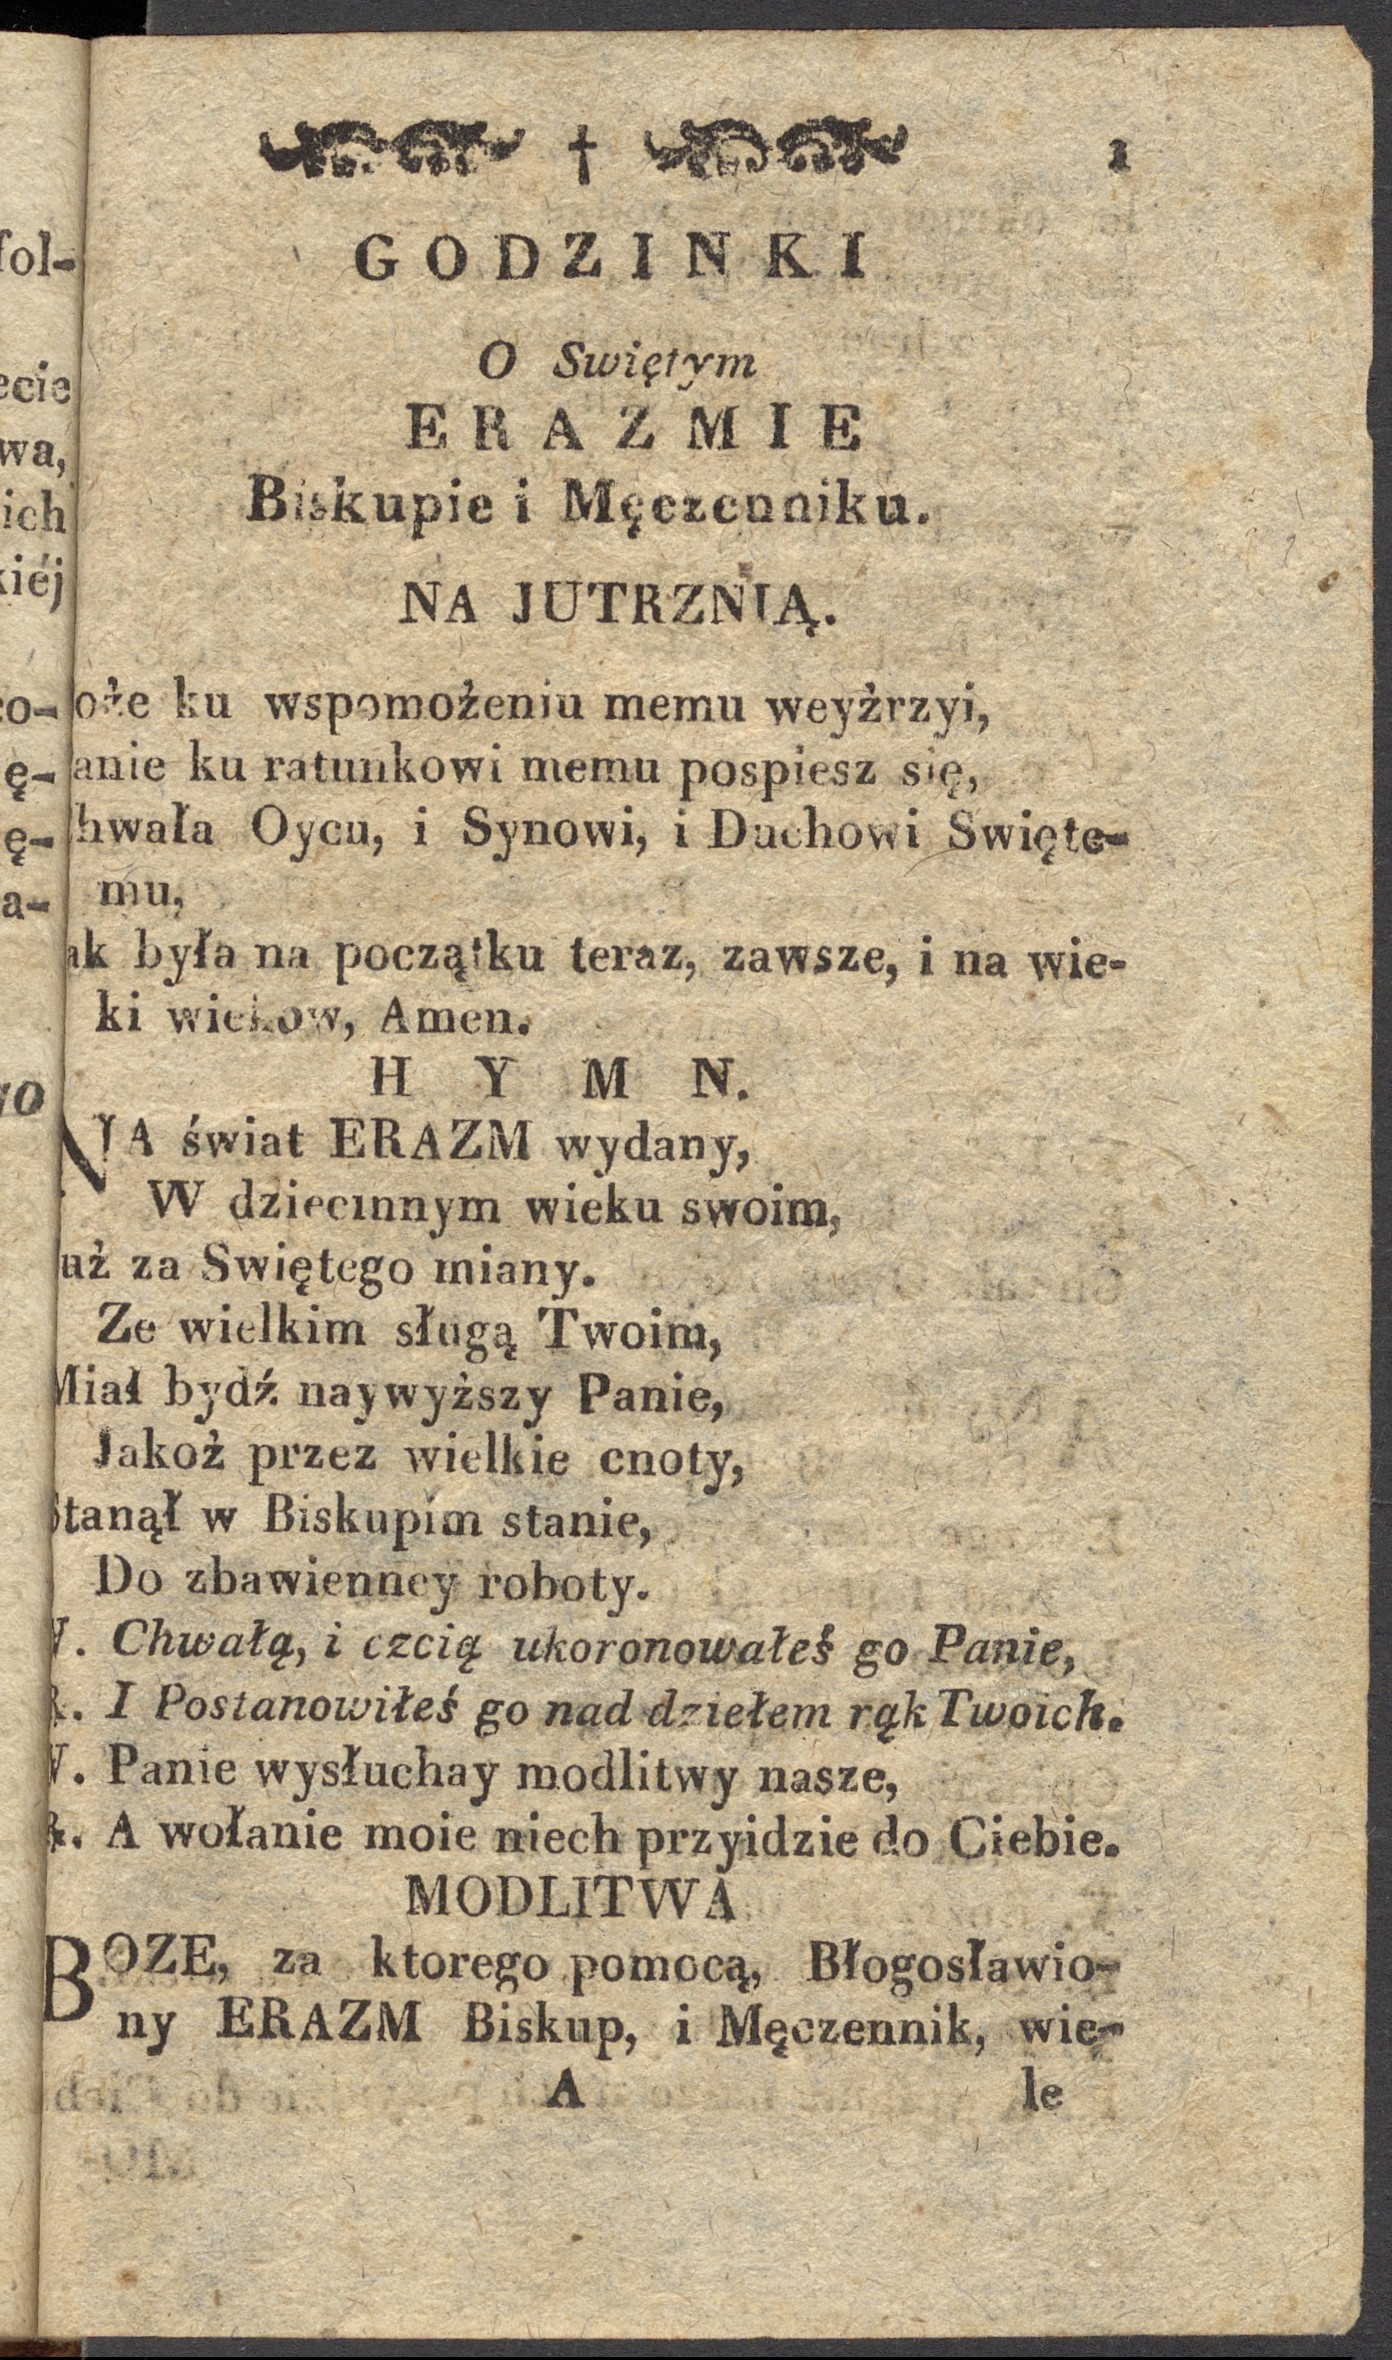 † 1
GODZINKI
O Swiętym
ERAZMIE
Biskupie i Męczenniku.
NA JUTRZNIĄ.
oże ku wspomożeniu memu weyżrzyi,
anie ku ratunkowi memu pospiesz się,
hwała Oycu, i Synowi, i Duchowi Swięte-
mu,
ak była na początku teraz, zawsze, i na wie-
ki wiekow, Amen.
HYMN.
NA świat ERAZM wydany,
W dziecinnym wieku swoim,
uż za Swiętego miany.
Ze wielkim sługą Twoim,
Miał bydź naywyższy Panie,
Jakoż przez wielkie cnoty,
Stanął w Biskupim stanie,
Do zbawienney roboty.
V. Chwałą, i czcią ukoronowałeś go Panie,
R. I Postanowiłeś go nad dziełem rąk Twoich.
V. Panie wysłuchay modlitwy nasze,
R. A wołanie moie niech przyidzie do Ciebie.
MODLITWA
BOZE, za ktorego pomocą, Błogosławio-
ny ERAZM Biskup, i Męczennik, wie-
A le